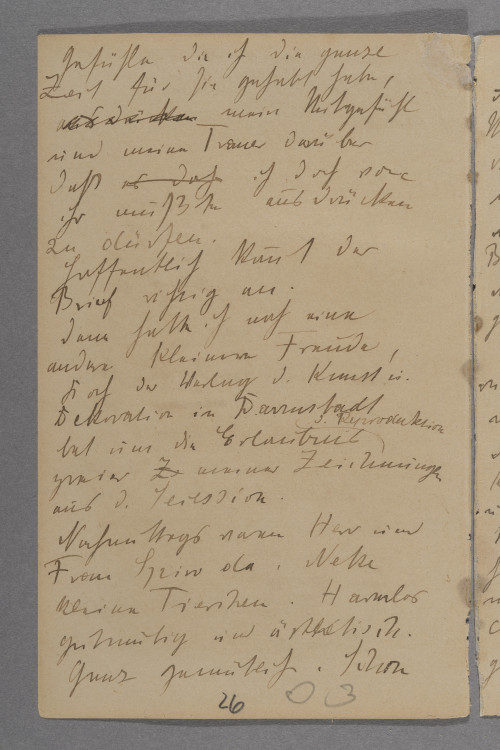 Gefühle die ich die ganze
Zeit für sie gehabt habe,
ausdrücken mein Mitgefühl
und meine Trauer darüber
daß es doch ich doch von
ihr mußte ausdrücken
zu dürfen.
Hoffentlich kamt der
Brief richtig an.
Dann hatte ich noch eine
andere kleinere Freude,
Koch der Verlag d. Kunst u.
Dekoration in Darmstadt
bat um die Erlaubnis
z. Reproduktion
zweier Ze meiner Zeichnungen
aus d. Secession.
Nachmittags waren Herr und
Frau Spiro da. Nette
kleine Tierchen. Harmlos
gutmütig und ästhetisch.
Ganz gemütlich. Schon
26